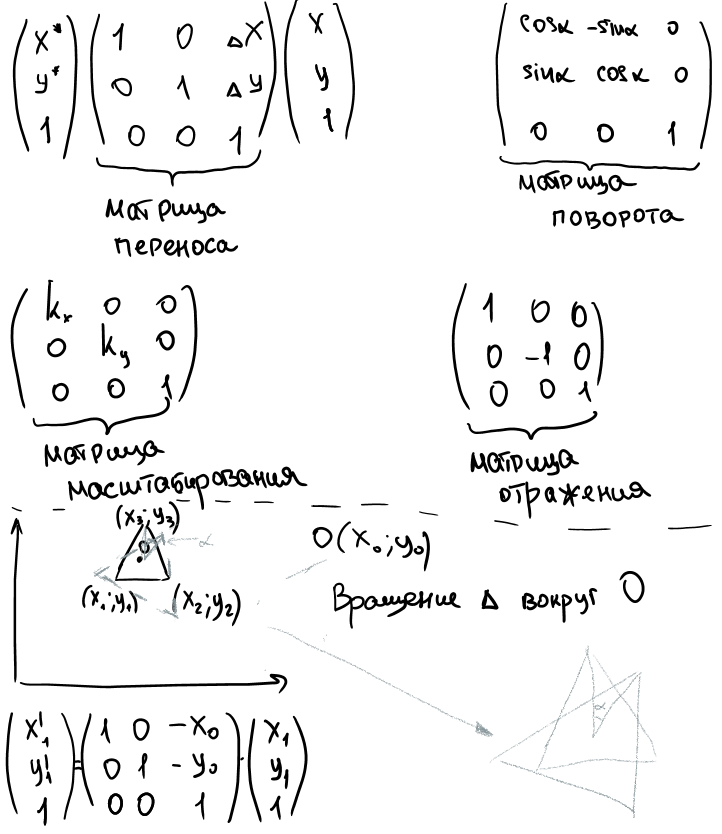 (x* y* 1) (1 0 Δx 0 1 Δy 0 0 1) (x y 1)
матрица
переноса
(cosα -sinα 0 sinα cosα 0 0 0 1)
матрица
поворота
(kₓ 0 0 0 kᵧ 0 0 0 1)
матрица
масштабирования
(1 0 0 0 -1 0 0 0 1)
матрица
отражения
(x₃; y₃)
O
α
(x₁; y₁) (x₂; y₂)
O(x₀; y₀)
Вращение Δ вокруг O
α
(x₁' y₁' 1) = (1 0 -x₀ 0 1 -y₀ 0 0 1) · (x₁ y₁ 1)